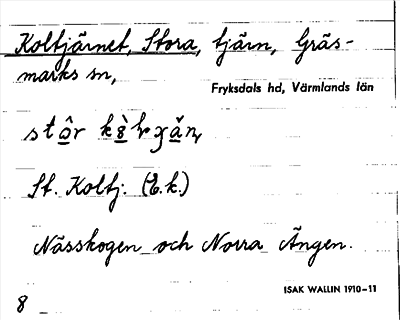 Koltjärnet, Stora, tjärn, Gräs-
marks sn,
Fryksdals hd, Värmlands län
St. Koltj. (E.k.)
Nässkogen och Norra Ängen.
ISAK WALLIN 1910-11
8